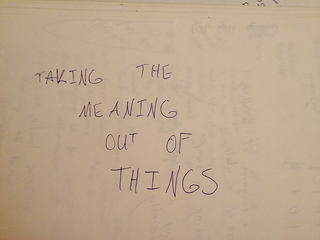 TAKING THE
MEANING
OUT OF
THINGS